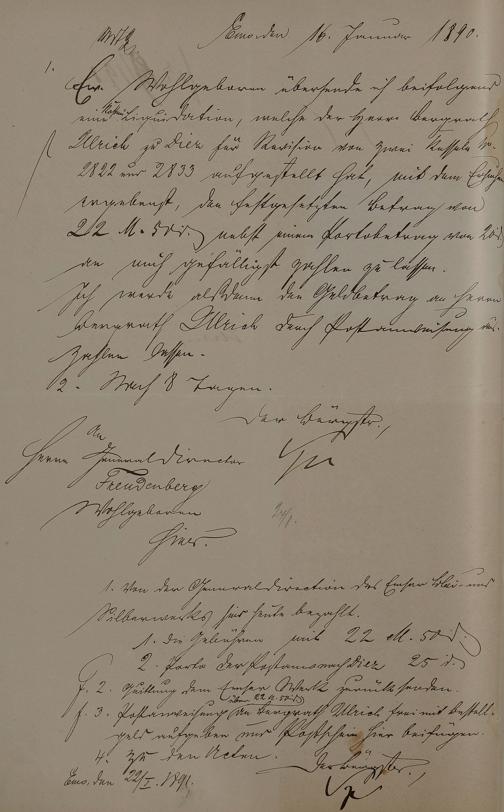 Ems, den 16. Januar 1890.
1.
Ew. Wohlgeboren übersende ich beifolgend
eine Liquidation, welche der Herr Bergrath
Ulrich zu Diez für Revision von zwei Kesseln No.
2822 und 2833 aufgestellt hat, mit dem Ersuchen
ergebenst, den festgesetzten Betrag von
22 M. 50 d. nebst einem Portobetrag von 20 d
an mich gefälligst zahlen zu lassen.
Ich werde alsdann den Geldbetrag an Herrn
Bergrath Ulrich durch Postanweisung aus-
zahlen lassen.
2. Nach 8 Tagen.
Der Bürgstr.,
An
Herrn Generaldirector
Freudenberg
Wohlgeboren
hier.
1. Von der Generaldirection des Emser Blei- und
Silberwerks hier heute bezahlt.
1. die Gebühren mit 22 M. 50 d.
2. Porto der Postanw. nach Diez 25 d.
f. 2. Quittung dem Emser Werk zurücksenden.
über 22 M. 50 d
f. 3. Postanweisung an Bergrath Ulrich frei mit Bestell-
geld aufgeben und Postschein hier beifügen.
4. Zu den Acten.
Ems, den 22/I. 1891.
Der Bürgstr.,